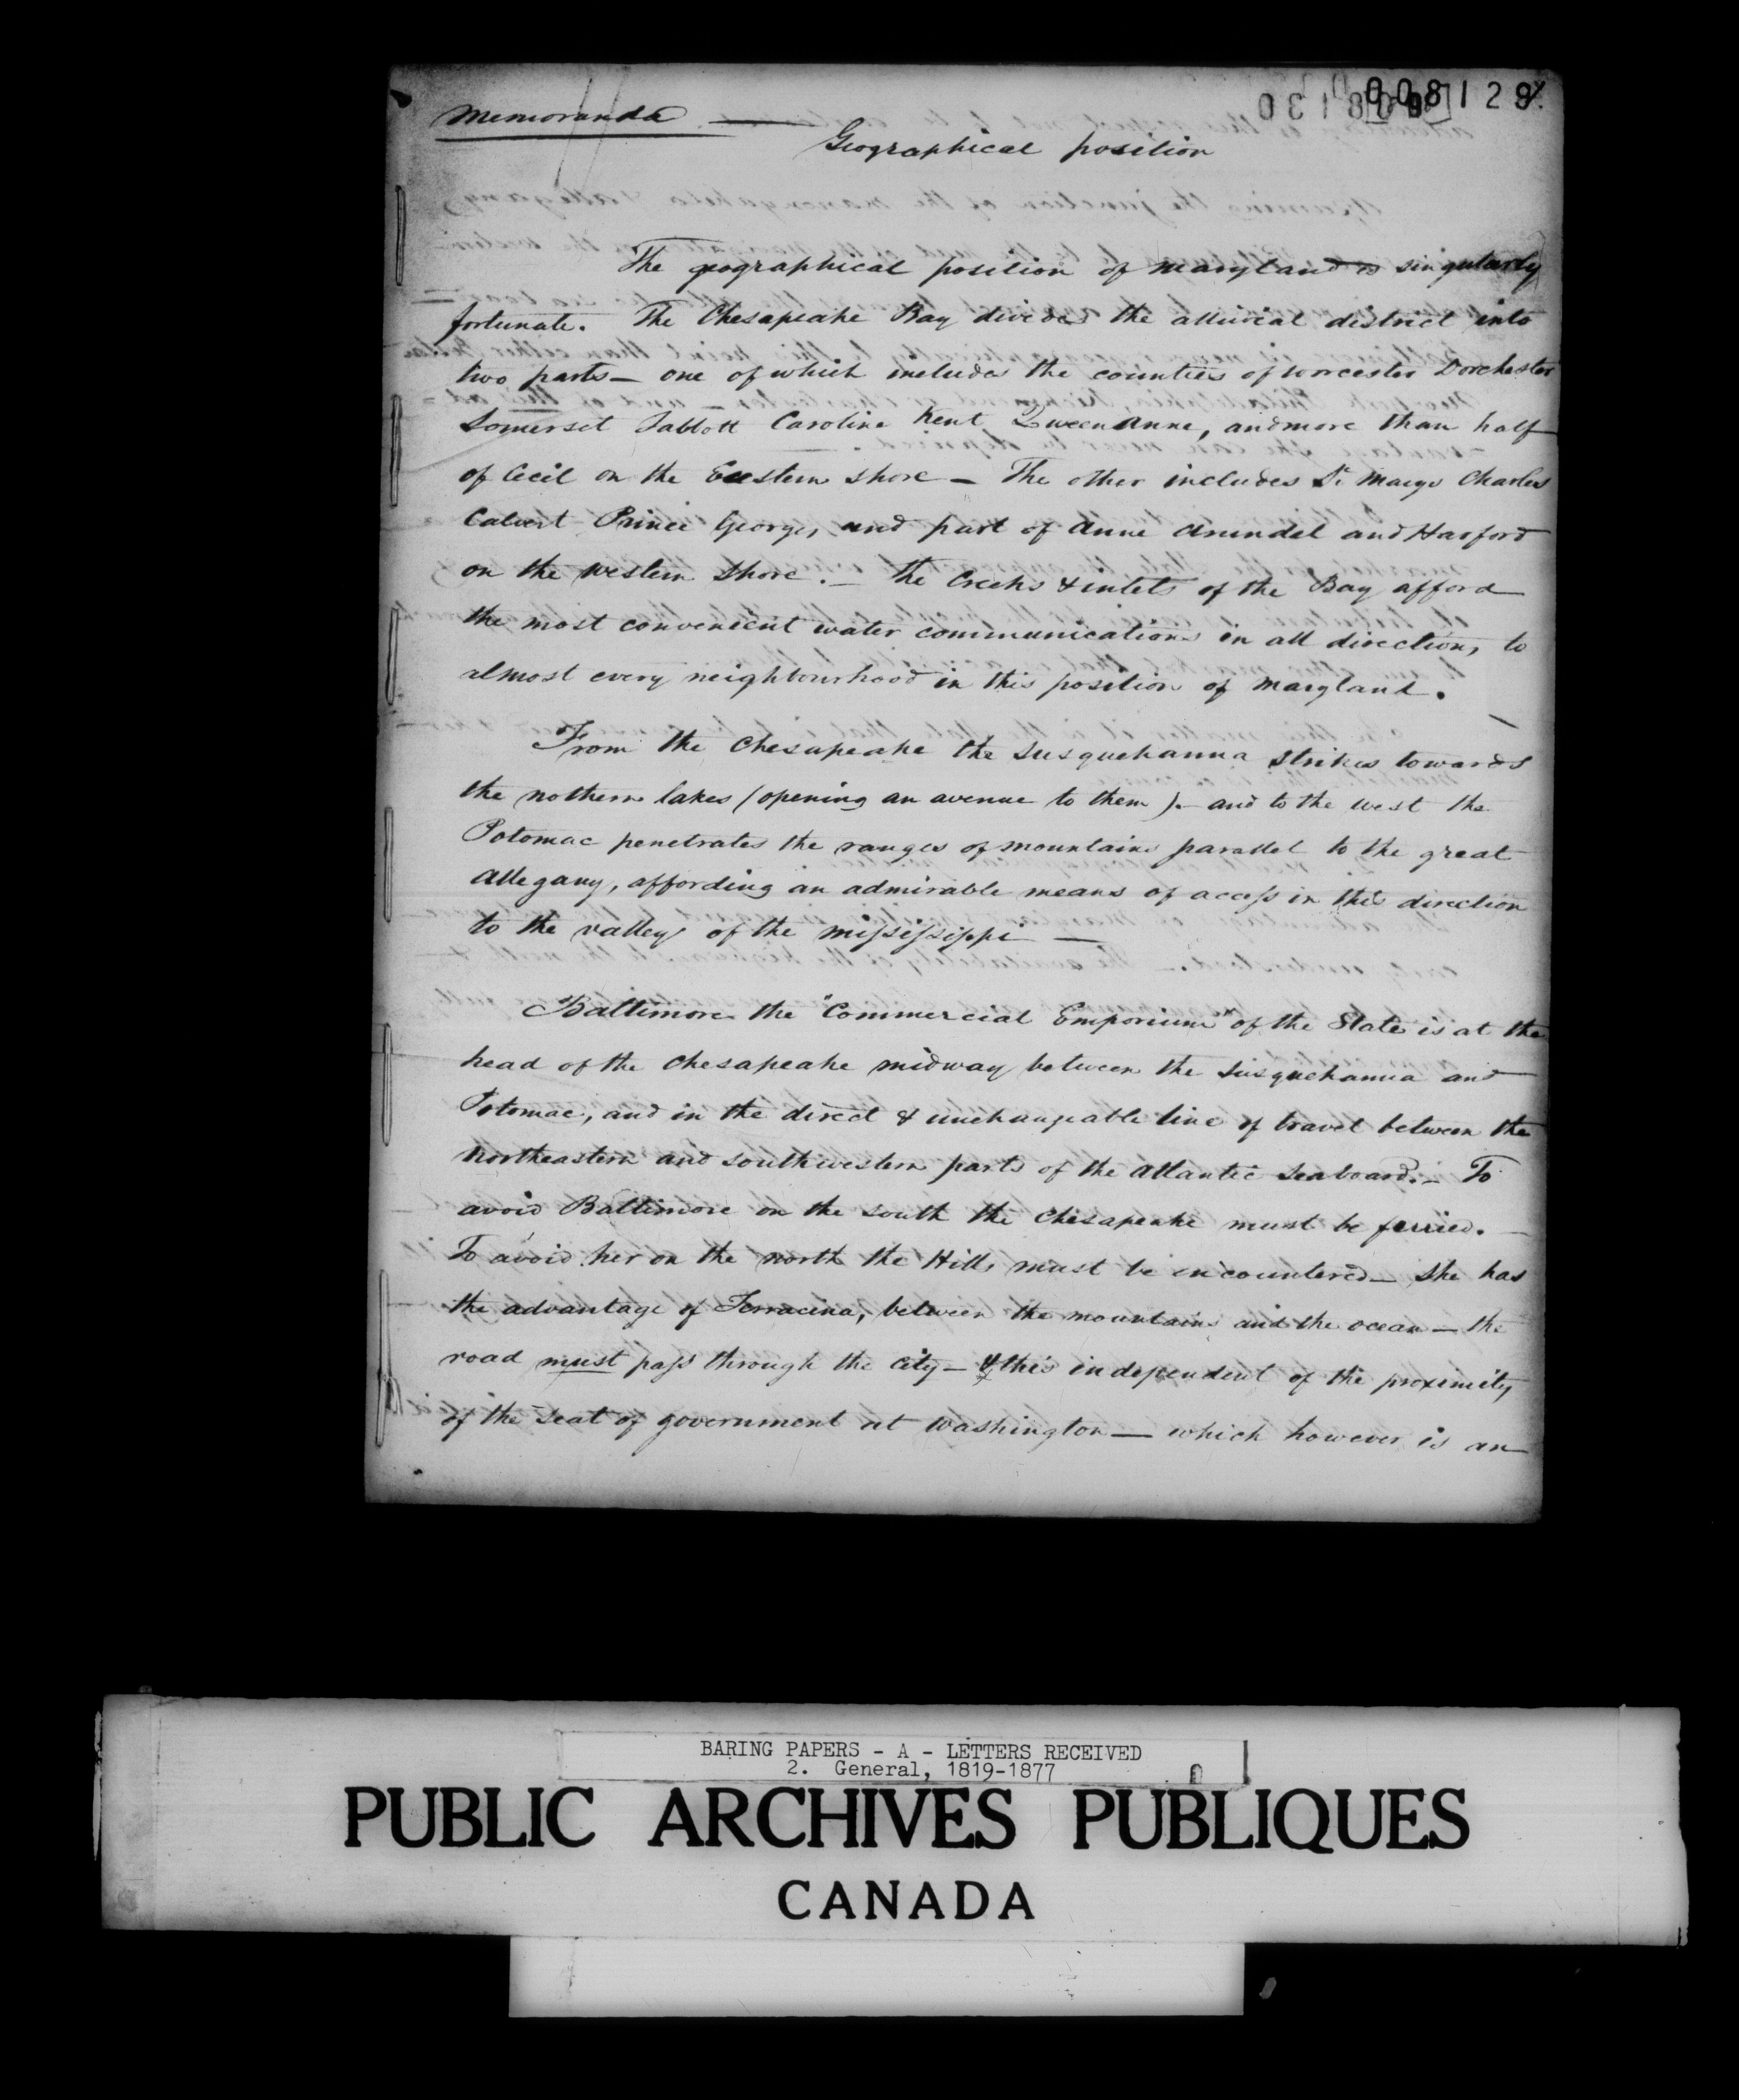 008129
Memoranda —
Geographical position
The geographical position of Maryland is singularly
fortunate. The Chesapeake Bay divides the alluvial district into
two parts — one of which includes the counties of Worcester Dorchester
Somerset Talbott Caroline Kent Queen Anne, and more than half
of Cecil on the Eastern shore — The other includes St Marys Charles
Calvert Prince Georges, and part of Anne Arundel and Harford
on the Western Shore. — The Creeks & inlets of the Bay afford
the most convenient water communications in all directions, to
almost every neighbourhood in this position of Maryland.
From the Chesapeake the Susquehanna strikes towards
the nothern lakes (opening an avenue to them). — and to the west the
Potomac penetrates the ranges of mountains parallel to the great
Allegany, affording an admirable means of access in this direction
to the valley of the Mississippi —
Baltimore the "Commercial Emporium" of the State is at the
head of the Chesapeake midway between the Susquehanna and
Potomac, and in the direct & unchangeable line of travel between the
Northeastern and southwestern parts of the Atlantic Seaboard. — To
avoid Baltimore on the south the Chesapeake must be ferried. —
To avoid her on the north the Hills must be encountered — She has
the advantage of Terracina, between the mountains and the ocean — the
road must pass through the city — & this independent of the proximity
of the seat of government at Washington — which however is an
BARING PAPERS - A - LETTERS RECEIVED
2. General, 1819-1877
PUBLIC ARCHIVES PUBLIQUES
CANADA